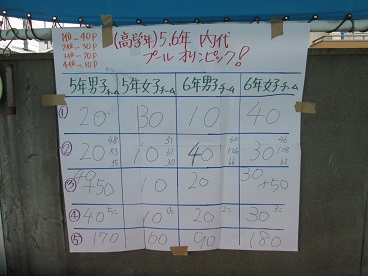 1位→40P
2位→30P
3位→20P
4位→10P
(高学年)5,6年 内代
プール オリンピック!
5年男子チーム 5年女子チーム 6年男子チーム 6年女子チーム
① 20 30 10 40
② 20 48 83 35 10 31 61 30 40 60 126 66 30 46 108 62
③ 40+50 10 20 30+50
④ 40 5こ 10 0こ 20 2こ 30 3こ
⑤ 170 60 90 180